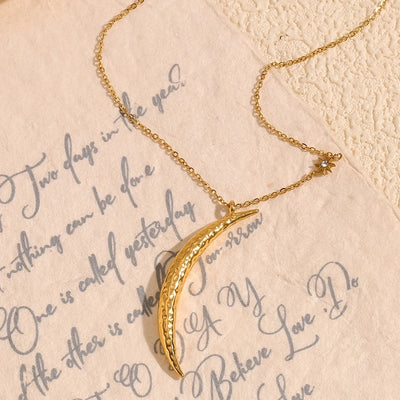 Two days in the year
nothing can be done
One is called yesterday
d the other is called Tomorrow
TO D A Y
Believe Love Do